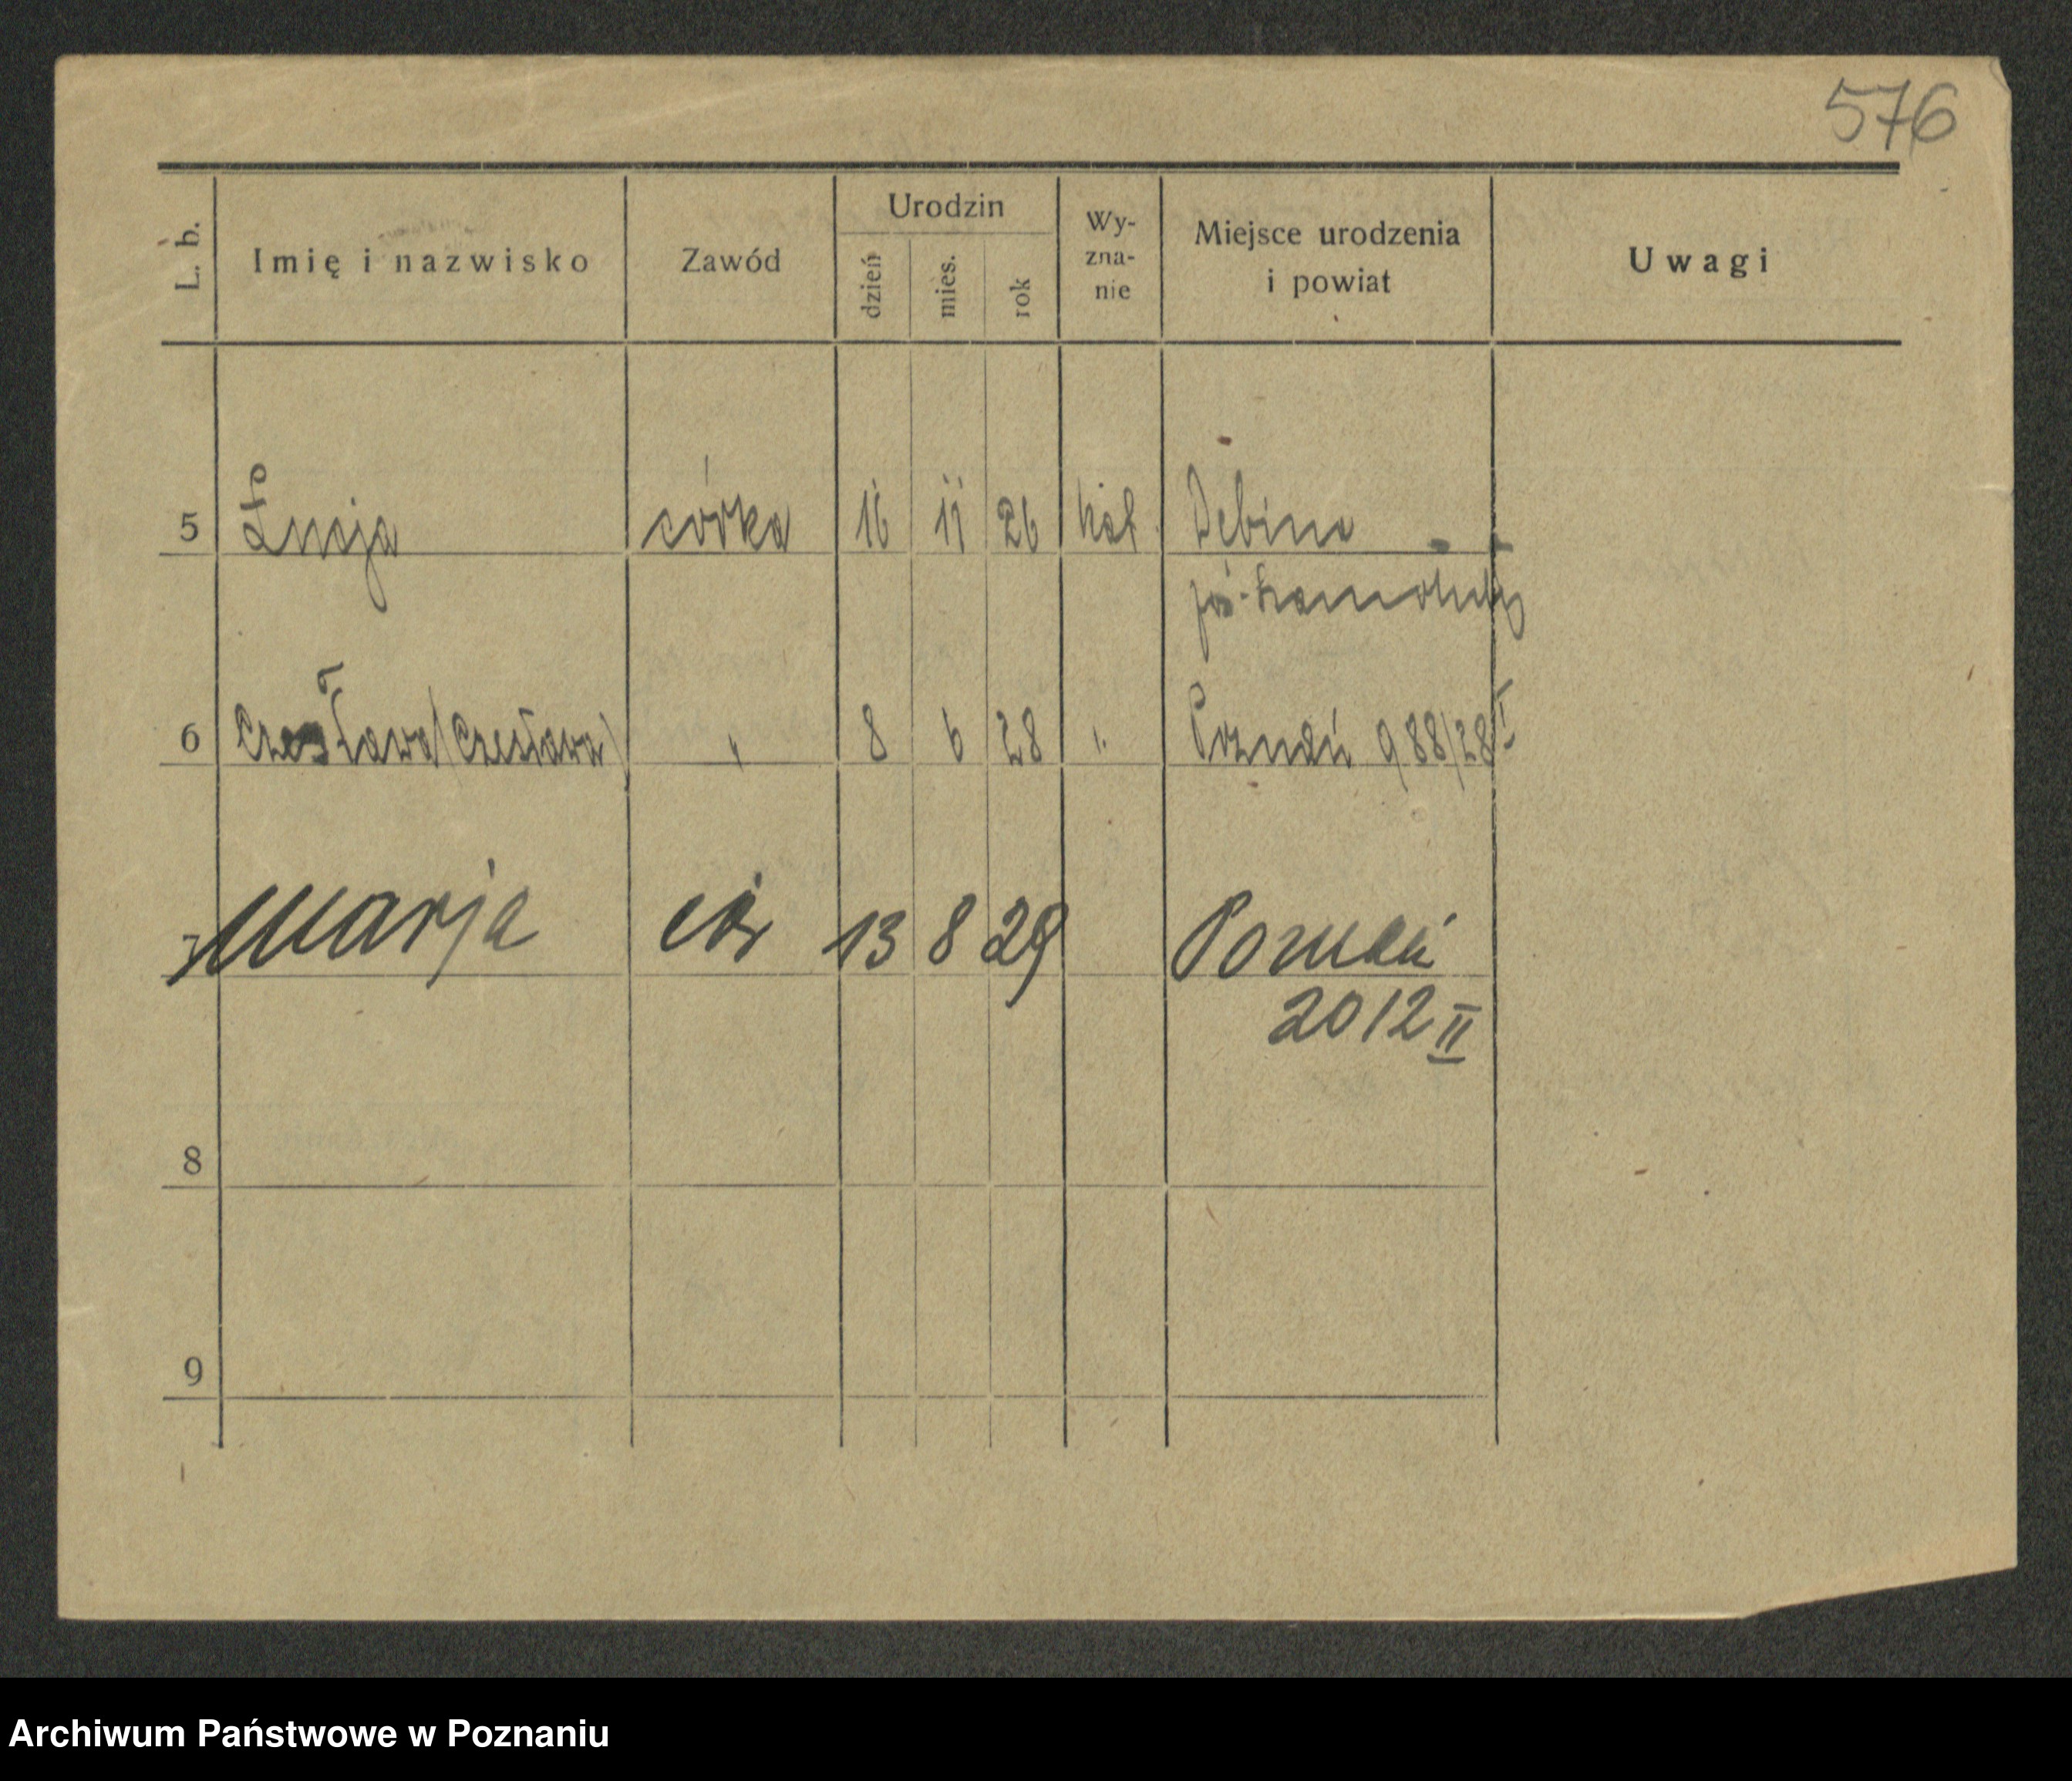 576
L. b. Imię i nazwisko Zawód Urodzin dzień mies. rok Wy-zna-nie Miejsce urodzenia i powiat Uwagi
5 Łucja córka 16 11 26 kat. Dębina
pow.
6 Czesława (Czesława) " 8 6 28 " Poznań 988/28 I
7 Marja cór 13 8 29 Poznań
2012 II
8
9
Archiwum Państwowe w Poznaniu